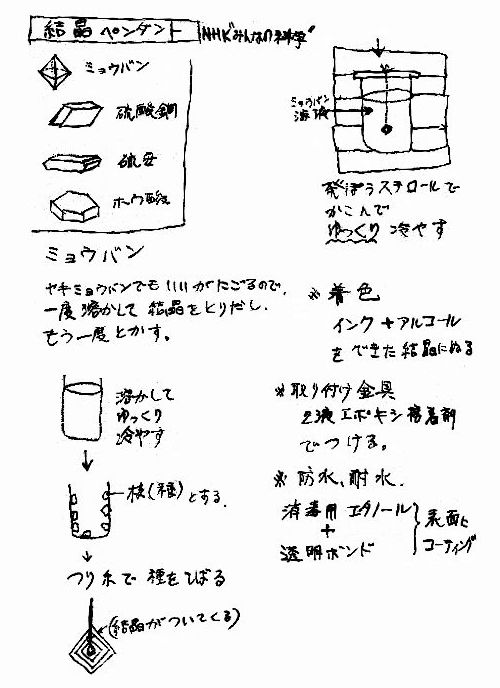 結晶ペンダント NHK"みんなの科学"
ミョウバン
硫酸銅
硫安
ホウ酸
ミョウバン
ヤキミョウバンでもいいがにごるので、
一度溶かして結晶をとりだし、
もう一度とかす。
溶かして
ゆっくり
冷やす
核(種)とする
つり糸で種をしばる
(結晶がついてくる)
ミョウバン
溶液
発ぽうスチロールで
かこんで
ゆっくり冷やす
※着色
インク+アルコール
をできた結晶にぬる
※取り付け金具
2液エポキシ接着剤
でつける。
※防水、耐水
消毒用エタノール
+
透明ボンド
表面に
コーティング